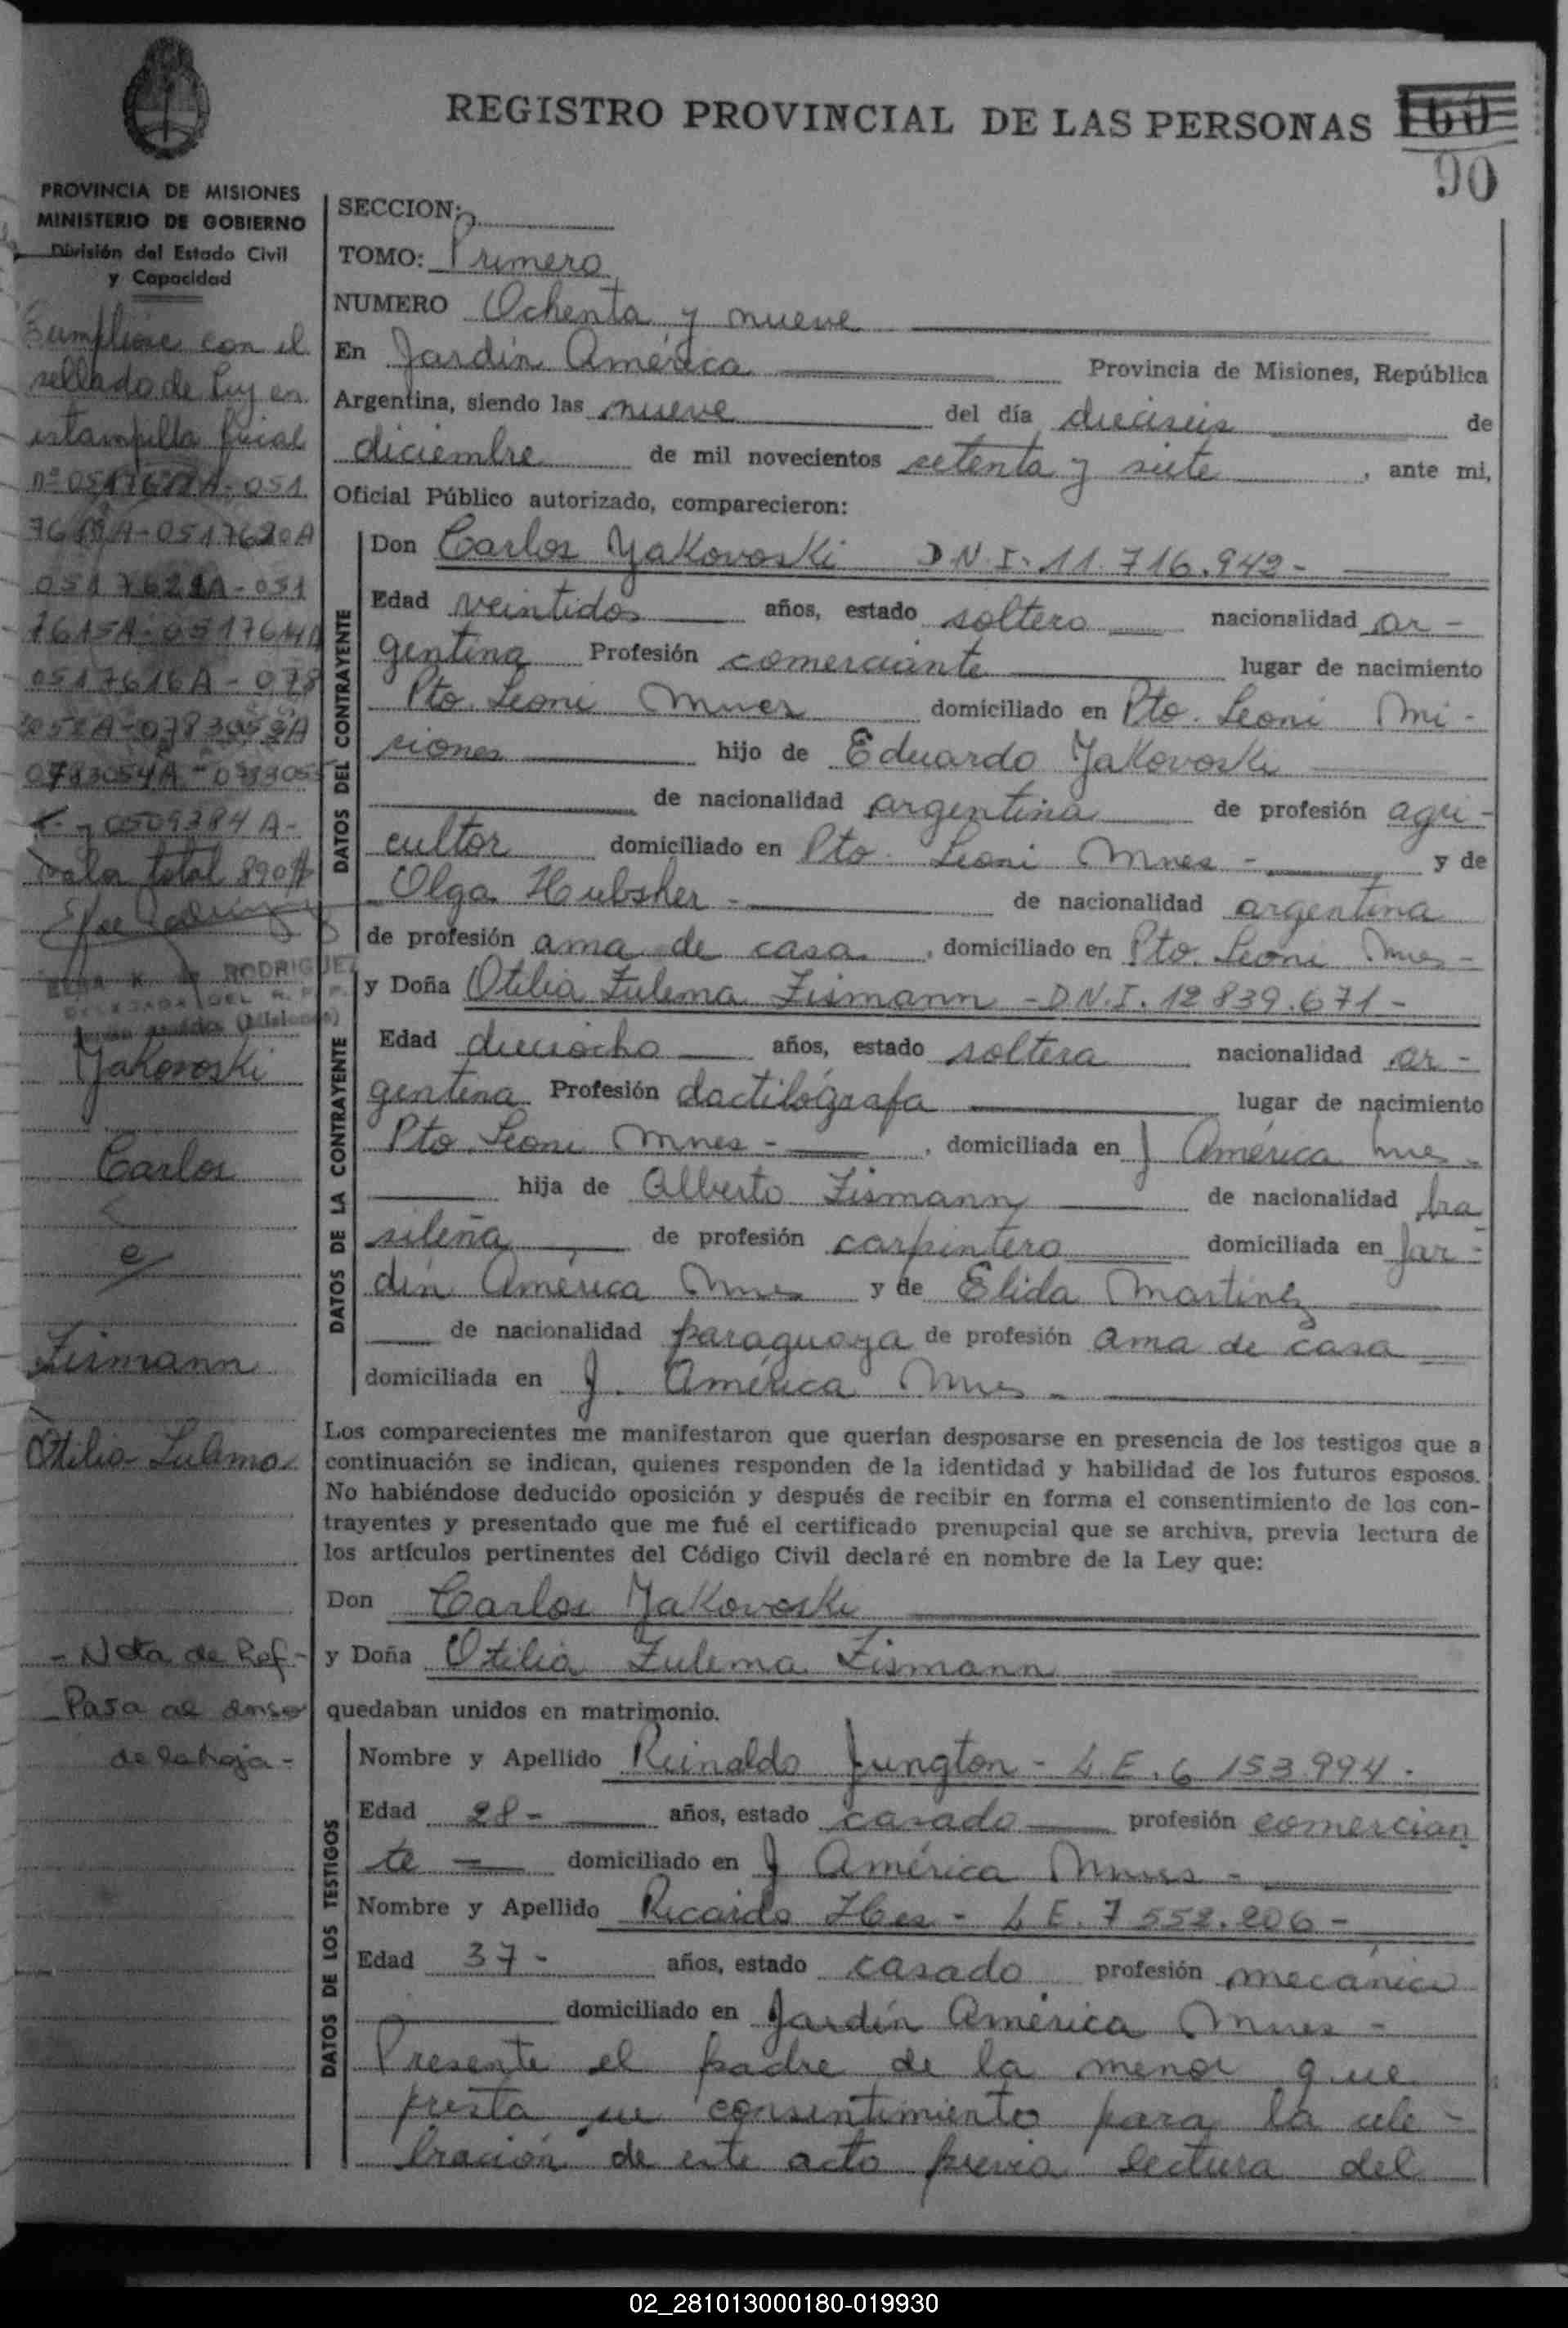 REGISTRO PROVINCIAL DE LAS PERSONAS 160
90
PROVINCIA DE MISIONES
MINISTERIO DE GOBIERNO
División del Estado Civil
y Capacidad
Cumplióse con el
sellado de Ley en
estampilla fiscal
051
0517620A
- 051
0517616A - 078
0783054A - 078305
y 0509384 A-
Valor total 890$
RODRIGUEZ
DEL R. P. P.
(Misiones)
Yakovoski
Carlos
e/
Zismann
Otilia Zulema
- Nota de Ref.-
Pasa al dorso
de la hoja -
SECCION:
TOMO: Primero
NUMERO Ochenta y nueve
En Jardín América Provincia de Misiones, República
Argentina, siendo las nueve del día dieciseis de
diciembre de mil novecientos setenta y siete, ante mi,
Oficial Público autorizado, comparecieron:
DATOS DEL CONTRAYENTE
Don Carlos Yakovoski D.N.I. 11.716.942-
Edad veintidos años, estado soltero nacionalidad ar-
gentina Profesión comerciante lugar de nacimiento
Pto. Leoni Mnes domiciliado en Pto. Leoni Mi-
siones hijo de Eduardo Yakovoski
de nacionalidad argentina de profesión agri-
cultor domiciliado en Pto. Leoni Mnes - y de
Olga Hubsher - de nacionalidad argentina
de profesión ama de casa, domiciliado en Pto. Leoni Mnes-
DATOS DE LA CONTRAYENTE
y Doña Otilia Zulema Zismann - D.N.I. 12.839.671-
Edad dieciocho años, estado soltera nacionalidad ar-
gentina Profesión dactilógrafa lugar de nacimiento
Pto. Leoni Mnes -, domiciliada en J América Mnes -
hija de Alberto Zismann de nacionalidad bra
sileña de profesión carpintero domiciliada en Jar-
dín América Mnes y de Elida Martinez
de nacionalidad paraguaya de profesión ama de casa
domiciliada en J. América Mnes -
Los comparecientes me manifestaron que querían desposarse en presencia de los testigos que a
continuación se indican, quienes responden de la identidad y habilidad de los futuros esposos.
No habiéndose deducido oposición y después de recibir en forma el consentimiento de los con-
trayentes y presentado que me fué el certificado prenupcial que se archiva, previa lectura de
los artículos pertinentes del Código Civil declaré en nombre de la Ley que:
Don Carlos Yakovoski
y Doña Otilia Zulema Zismann
quedaban unidos en matrimonio.
DATOS DE LOS TESTIGOS
Nombre y Apellido Reinaldo Jungton - L.E. 6 153.994.
Edad 28- años, estado casado profesión comercian
te - domiciliado en J América Mnes -
Nombre y Apellido Ricardo - L.E. 7 552.206-
Edad 37- años, estado casado profesión mecánico
domiciliado en Jardín América Mnes -
Presente el padre de la menor que
presta su consentimiento para la cele-
bración de este acto previa lectura del
02_281013000180-019930